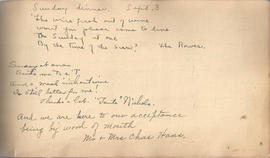 Sunday dinner. Sept. 3
The wire fresh out of wine
Won't you please come to dine
On Sunday at one
By the Time of the Sun? The Haases.
Sunday at one
Suits me to a T.
And a meal
is still better for me!
Thanks a lot. "Tante" Nichols.
And we are here to our acceptance
being by word of mouth
Mr & Mrs Chas Haas,